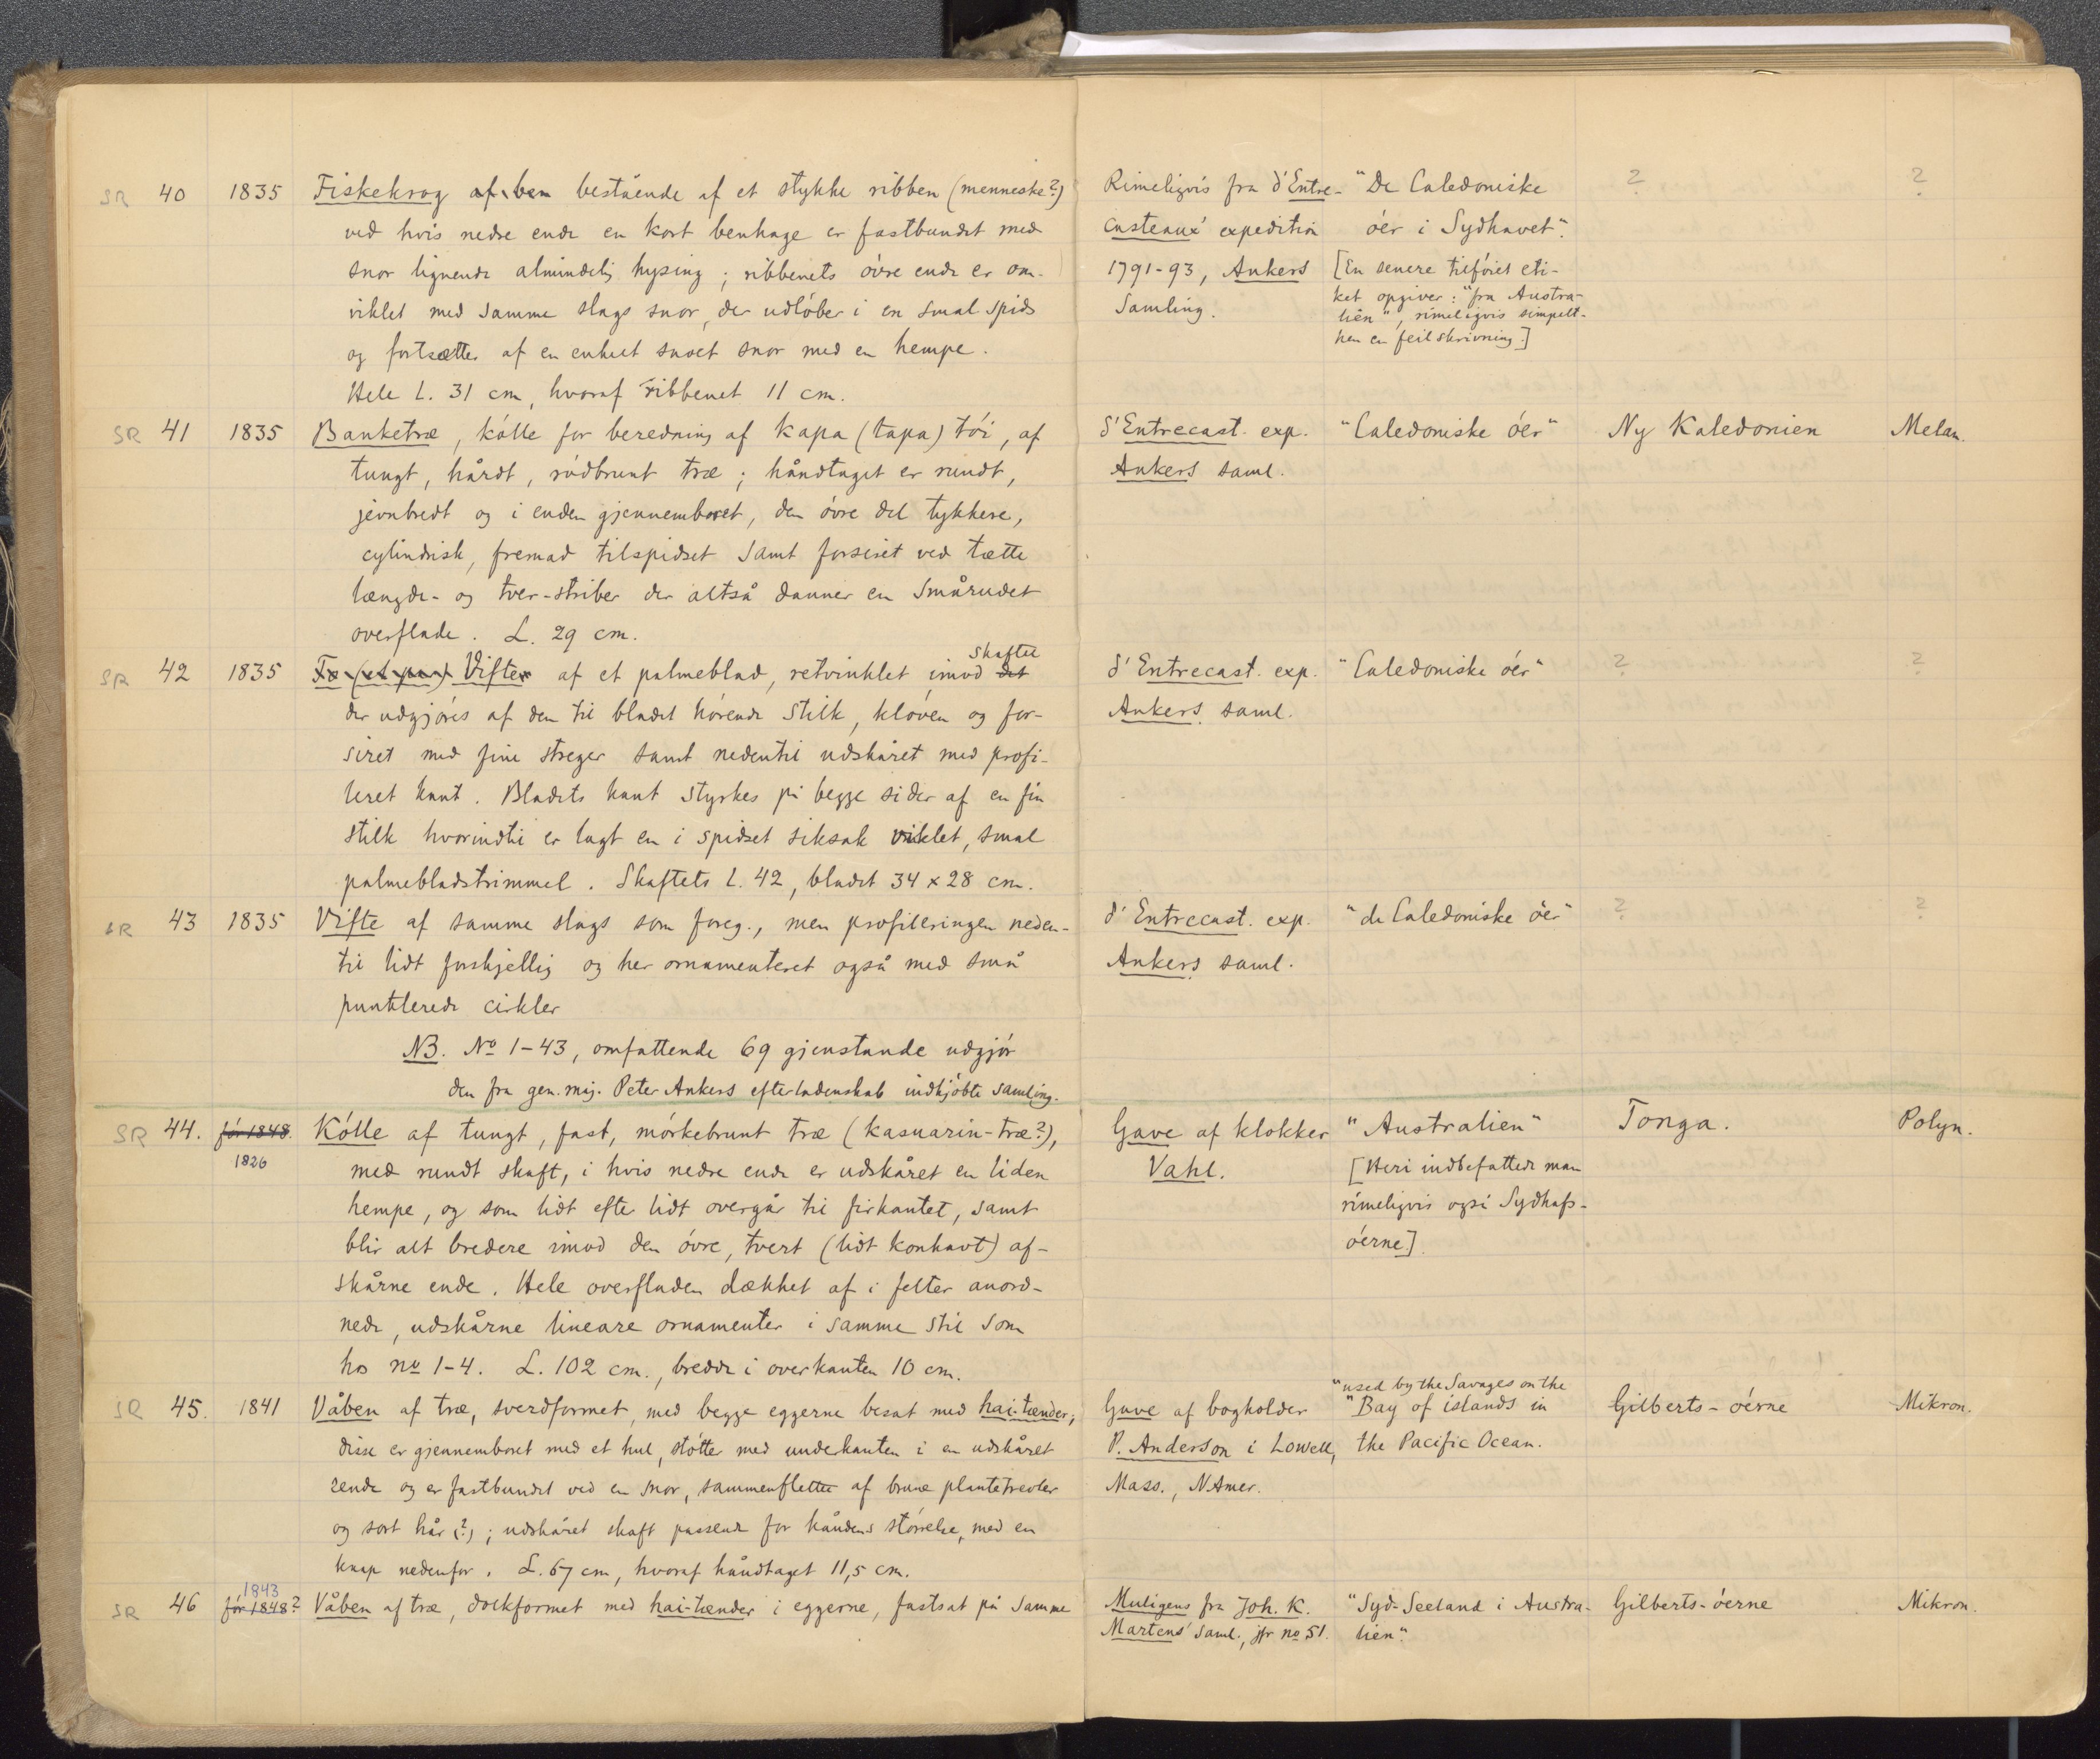 SR 40 1835 Fiskekrog af ben bestående af et stykke ribben (menneske?) Rimeligvis fra d'Entre- "De Caledoniske ? ?
ved hvis nedre ende en kort benhage er fastbundet med casteaux' expedition öer i Sydhavet".
snor lignende almindelig hysing; ribbenets övre ende er om- 1791-93, Ankers [En senere tilföiet eti-
viklet med samme slags snor, der udlöber i en smal spids Samling. ket opgiver: "fra Austra-
lien", rimeligvis simpelt-
og fortsættes af en enkelt snoet snor med en hempe. hen en feilskrivning.]
Hele L. 31 cm, hvoraf ribbenet 11 cm.
SR 41 1835 Banketræ, kölle for beredning af kapa (tapa) töi, af d'Entrecast. exp. "Caledoniske öer" Ny Kaledonien Melan.
tungt, hårdt, rödbrunt træ; håndtaget er rundt, Ankers saml.
jevnbredt og i enden gjennemboret, den övre del tykkere,
cylindrisk, fremad tilspidset samt forsiret ved tætte
længde- og tver-striber der altså danner en smårudet
overflade. L. 29 cm.
skaftet
SR 42 1835 To (et par) Vifter af et palmeblad, retvinklet imod det d'Entrecast. exp. "Caledoniske öer" ? ?
der udgjöres af den til bladet hörende stilk, klöven og for- Ankers saml.
siret med fine streger samt nedentil udskåret med profi-
leret kant. Bladets kant styrkes på begge sider af en fin
stilk hvorindtil er lagt en i spidset siksak viklet, smal
palmebladstrimmel. Skaftets L. 42, bladet 34 x 28 cm.
SR 43 1835 Vifte af samme slags som foreg., men profileringen neden- d'Entrecast. exp. "de Caledoniske öer" ? ?
til lidt forskjellig og her ornamenteret også med små Ankers saml.
punkterede cirkler
NB. No 1-43, omfattende 69 gjenstande udgjör
den fra gen. maj. Peter Ankers efterladenskab indkjöbte samling.
SR 44. för 1848. Kölle af tungt, fast, mörkebrunt træ (kasuarin-træ?), Gave af klokker "Australien" Tonga. Polyn.
1826 med rundt skaft, i hvis nedre ende er udskåret en liden Vahl. [Heri indbefattede man
hempe, og som lidt efter lidt overgår til firkantet, samt rimeligvis også Sydhafs-
blir alt bredere imod den övre, tvert (lidt konkavt) af- öerne].
skårne ende. Hele overfladen dækket af i felter anord-
nede, udskårne lineare ornamenter i samme stil som
hos no 1-4. L. 102 cm., bredde i overkanten 10 cm.
"used by the Savages on the
SR 45. 1841 Våben af træ, sverdformet, med begge eggerne besat med hai-tænder; Gave af bogholder "Bay of islands in Gilberts-öerne Mikron.
disse er gjennemboret med et hul, stötter med underkanten i en udskåret P. Anderson i Lowell, the Pacific Ocean.
rende og er fastbundet ved en snor, sammenflettet af brune plantetrevler Mass., N.Amer.
og sort hår (?); udskåret skaft passende for håndens störrelse, med en
knap nedenfor. L. 67 cm, hvoraf håndtaget 11,5 cm.
1843
SR 46 för 1848? Våben af træ, dolkformet med hai-tænder i eggerne, fastsat på samme Muligens fra Joh. K. "Syd-Seeland i Austra- Gilberts-öerne Mikron.
Martens' saml., jfr no 51. lien".